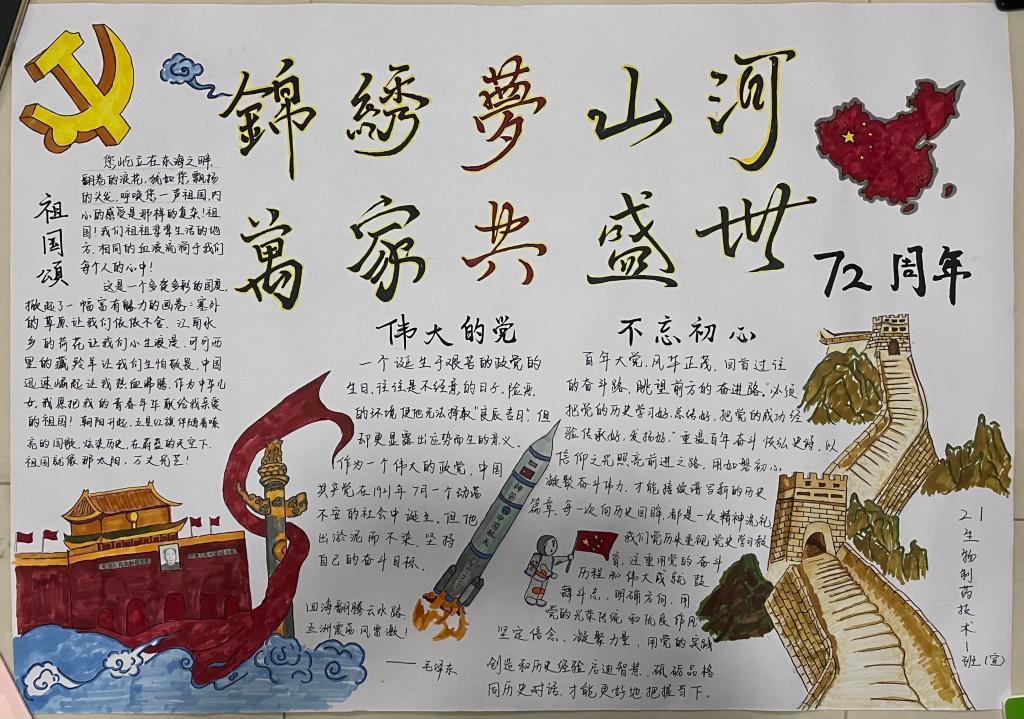 錦繡夢山河
萬家共盛世
72周年
祖国颂
您屹立在东海之畔,
翻卷的浪花,犹如您飘扬
的头发,呼唤您一声祖国,内
心的感受是那样的复杂!祖
国!我们祖祖辈辈生活的地
方,相同的血液流淌于我们
每个人的心中!
这是一个多姿多彩的国度,
掀起了一幅富有魅力的画卷:塞外
的草原让我们依依不舍、江南水
乡的荷花让我们心生浪漫、可可西
里的藏羚羊让我们生怕敬畏、中国
迅速崛起让我热血沸腾,作为中华儿
女,我愿把我的青春年华献给我亲爱
的祖国!朝阳升起,五星红旗伴随着嘹
亮的国歌,炫染历史,在蔚蓝的天空下,
祖国就像那太阳,万丈光芒!
伟大的党
一个诞生于艰苦的政党的
生日,往往是不经意的日子。险恶
的环境使他无法择取“良辰吉日”,但
却更显露出应势而生的意义。
作为一个伟大的政党,中国
共产党在1921年7月一个动荡
不安的社会中诞生。但他
出淤泥而不染,坚持
自己的奋斗目标。
四海翻腾云水路,
五洲震荡风雷激!
——毛泽东
不忘初心
百年大党,风华正茂,回首过往
的奋斗路,眺望前方的奋进路。“必须
把党的历史学习好、总结好,把党的成功经
验传承好,发扬好。”重温百年奋斗恢弘史诗,以
信仰之光照亮前进之路,用如磐初心
凝聚奋斗伟力,才能接续谱写新的历史
篇章。每一次向历史回眸,都是一次精神洗礼
我们党历来重视党史学习教
育,注重用党的奋斗
历程和伟大成就鼓
舞斗志,明确方向,用
党的光荣传统和优良作风
坚定信念、凝聚力量,用党的实践
创造和历史经验启迪智慧、砥砺品格
同历史对话,才能更好地把握当下。
神箭
中国航天
21生物制药技术一班(宣)